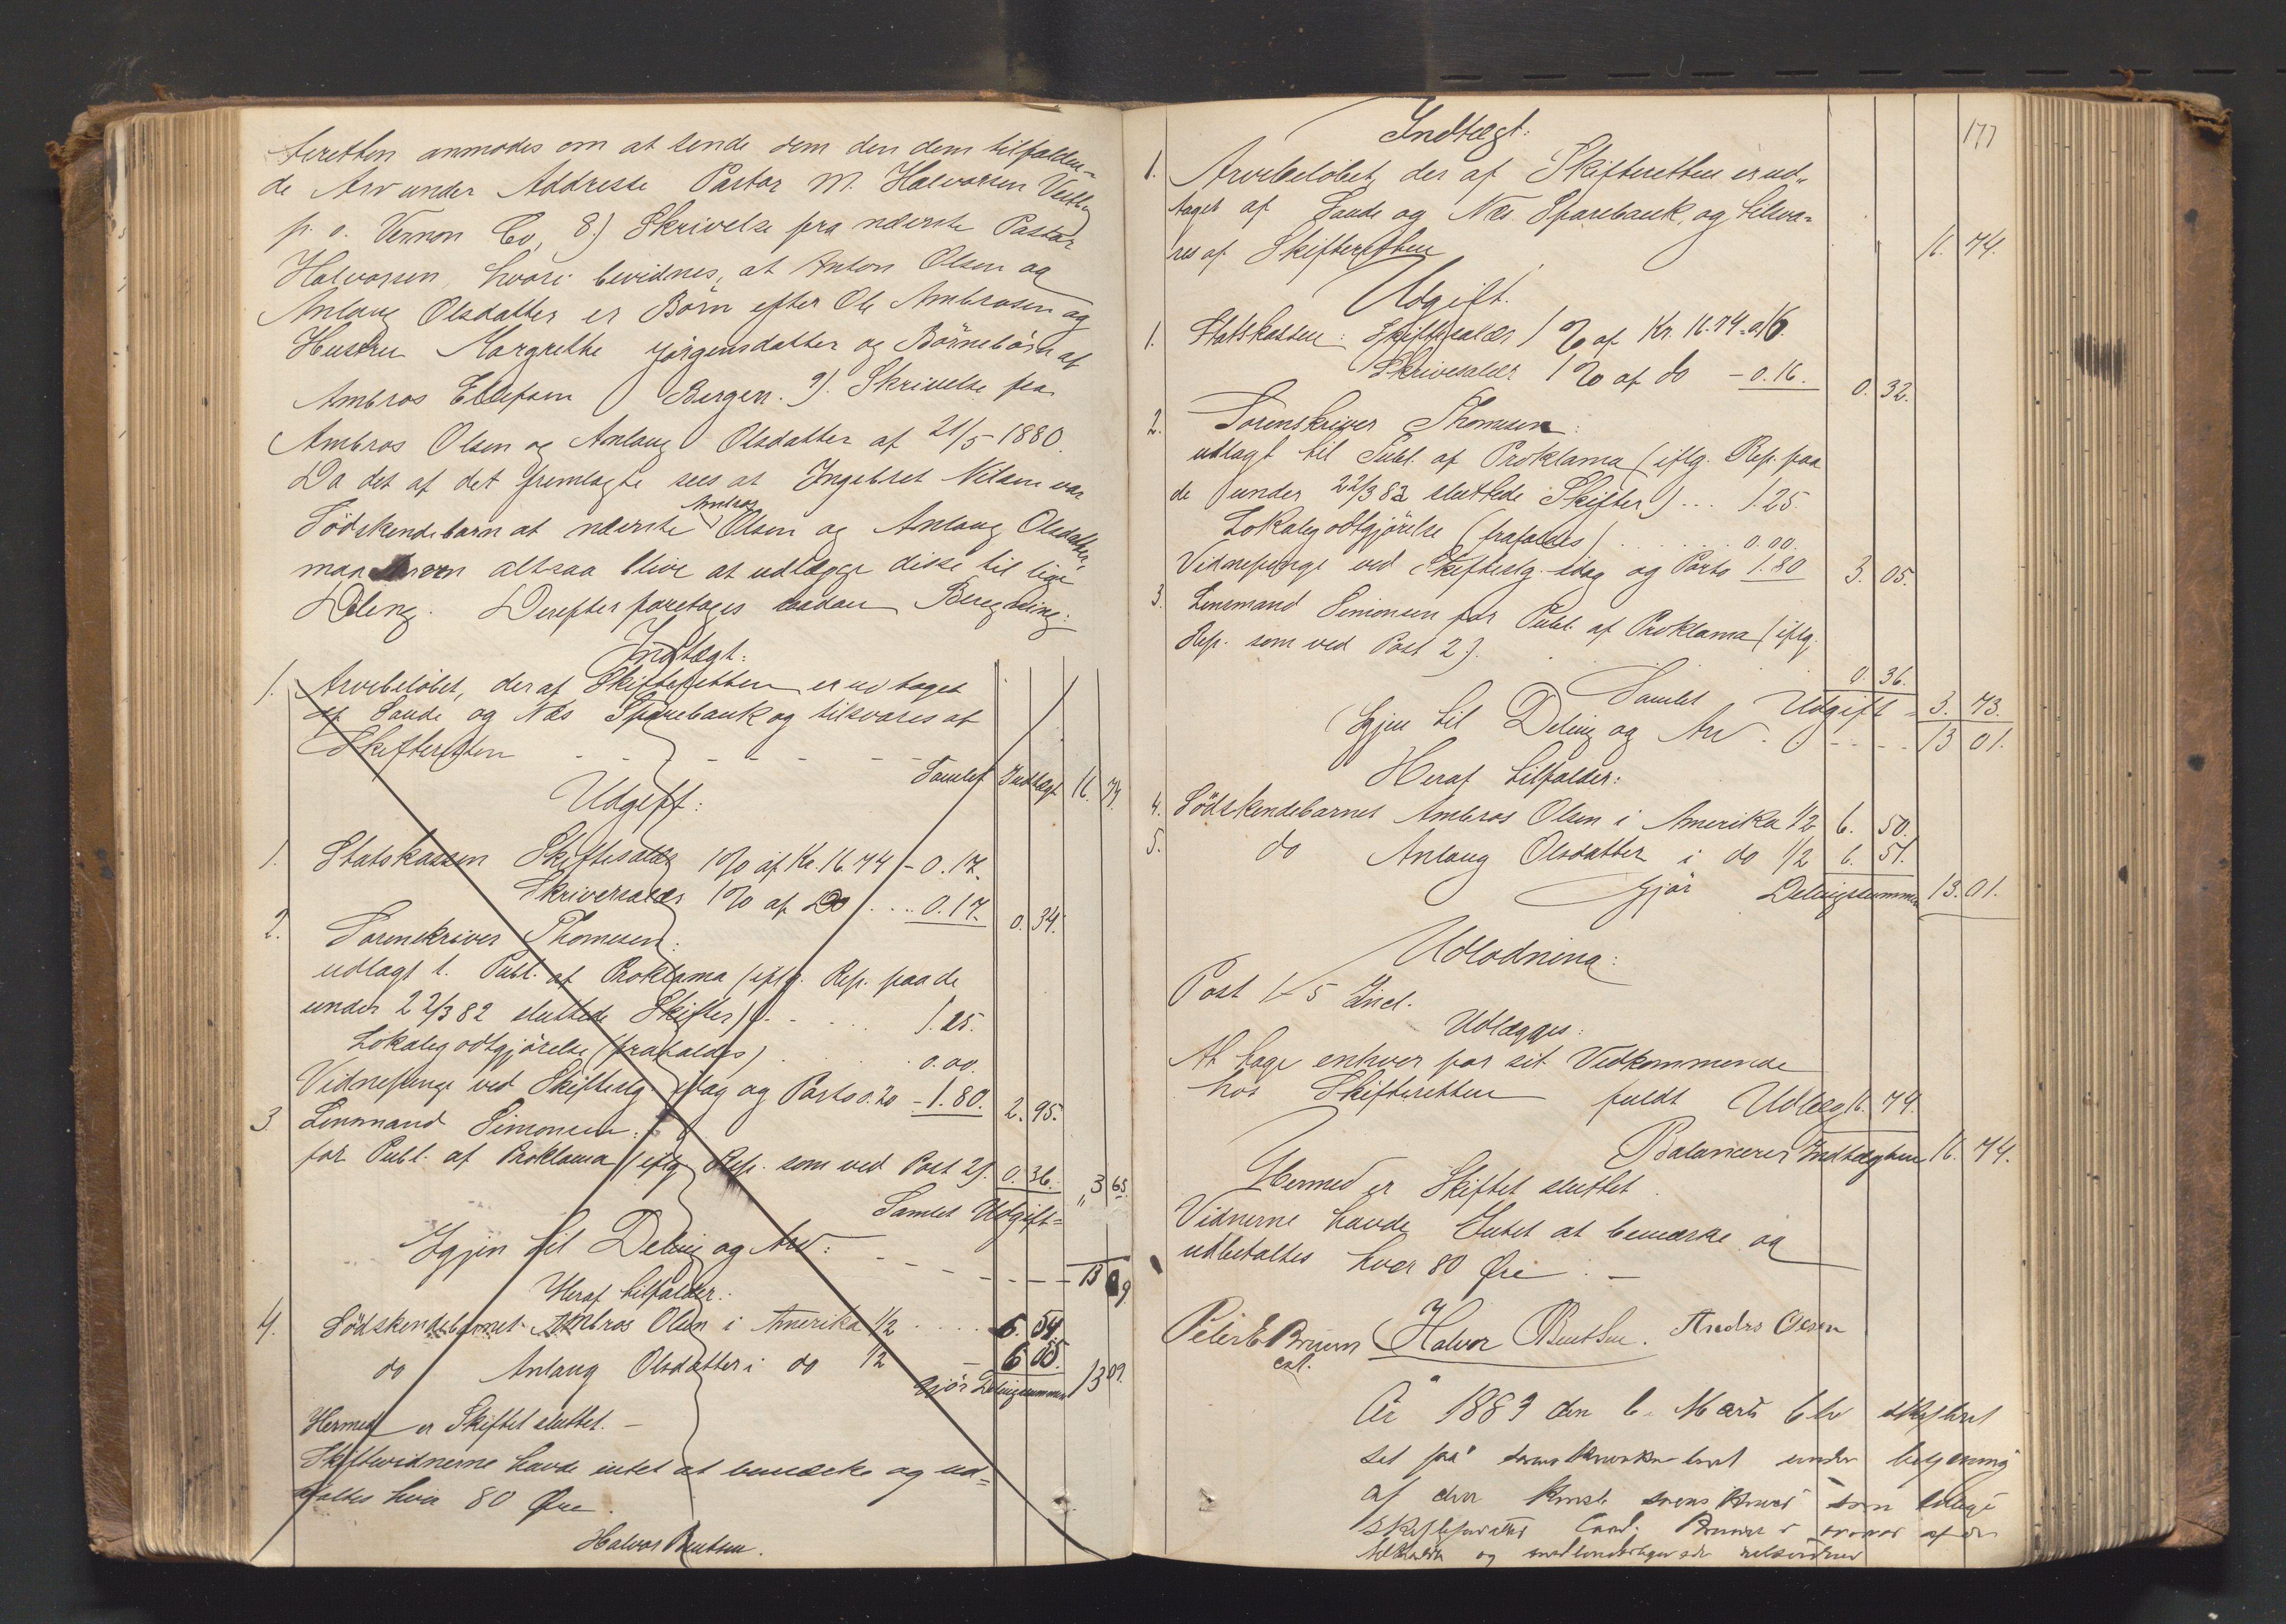 teretten anmodes om at sende dem den dem tilfalden-
de Arv under Addresse Pastor M. Halvorsen
p. o. Vernon Co, 8.) Skrivelse fra nævnte Pastor
Halvorsen, hvori bevidnes, at Anton Olsen og
Anlaug Olsdatter er Börn efter Ole Ambrosen og
Hustru Margrethe Jörgensdatter og Börnebörn af
Ambros Ellefsen Bergen. 9). Skrivelse fra
Ambros Olsen og Anlaug Olsdatter af 21/5 1880.
Da det af det fremlagte sees at Ingebret Nilsen var
Södskendebarn at nævnte Ambros Olsen og Anlaug Olsdatter,
maa Arven altsaa blive at udlægge disse til lige
Deling. Derefter foretages saadan Beregning:
Indtægt:
1. Arvebelöbet, der af Skifteretten er udtaget
af Sande og Næs Sparebank og tilsvares af
Skifteretten - - - - - -
Samlet Indtægt 16. 74.
Udgift:
1. Statskassen Skiftesalær 1 % af Kr. 16.74 - 0.17.
Skriversalær 1 % af Do .... 0.17. 0. 34.
2. Sorenskriver Thomesen:
udlagt t. Publ. af Proklama (iflg. Rep. paa de
under 22/3 82 sluttede Skifter) . . . 1.25.
Lokalegodtgjörelse (frafaldes) . . . 0.00.
Vidnepenge ved Skifteslg. idag og Porto 0.20 - 1.80. 2. 95.
3 Lensmand Simonsen:
for Publ. af Proklama (iflg. Rep. som ved Post 2). 0. 36.
Samlet Udgift = " 3 65.
Igjen til Deling og Arv: - - - - - 13 09
Heraf tilfalder:
4. Södskendebarnet Ambros Olsen i Amerika 1/2 . . . . 6. 54.
do Anlaug Olsdatter i do 1/2 - 6 55.
Gjör Delingssummen 13 09.
Hermed er Skiftet sluttet. -
Skiftevidnerne havde intet at bemærke og ud=
betaltes hver 80 Øre.
Halvor Bentsen.
177
Indtægt:
1. Arvebelöbet, der af Skifteretten er ud-
taget af Sande og Næs Sparebank, og tilsva-
res af Skifteretten 16. 74.
Udgift.
1. Statskassen: Skiftesalær 1 % af Kr. 16.74 - 0.16.
Skriversalær 1 % af do - 0.16. 0. 32.
2. Sorenskriver Thomesen:
udlagt til Publ. af Proklama (iflg. Rep. paa
de under 22/3 82 sluttede Skifter) ... 1.25.
Lokalegodtgjörelse (frafaldes) . . . . . 0.00.
Vidnepenge ved Skifteslg. idag og Porto 1.80 3. 05.
3. Lensmand Simonsen for Publ. af Proklama (iflg.
Rep. som ved Post 2). . . . 0. 36.
Samlet Udgift = 3. 73.
Igjen til Deling og Arv. - - - - 13 01.
Heraf tilfalder:
4. Södskendebarnet Ambros Olsen i Amerika 1/2 6. 50.
5. do Anlaug Olsdatter i do 1/2 6. 51.
Gjör Delingssummen 13. 01.
Udlodning:
Post 1-5 Incl.
Udlægges:
At tage enhver for sit Vedkommende
hos Skifteretten fuldt Udlæg 16. 74.
Balancerer Indtægten 16. 74.
Hermed er Skiftet sluttet.
Vidnerne havde Intet at bemærke og
udbetaltes hver 80 Øre. -
Peter E Bruun Halvor Bentsen. Anders Olsen
cst.
År 1883 den 6. Marts blev skifteret
sat på sorenskriverkontoret under betjening
af den konst. sorenskriver som tillige
skifteforvalter Cand. Bruun i overvær af de
og medundertegnede retsvidner